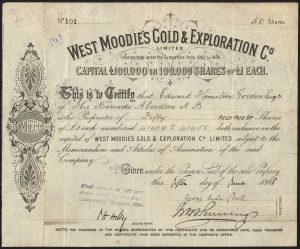 No 101
50 Shares
WEST MOODIES GOLD & EXPLORATION Co
LIMITED
Incorporated under the Companies Acts, 1862 to 1886.
CAPITAL £100,000 IN 100,000 SHARES OF £1 EACH.
This is to Certify that Edward Hamilton Gordon Esqre
of The Barrack Aberdeen N.B.
is the Proprietor of Fifty FULLY PAID UP Shares
of £1 each numbered 41409 to 41458 both inclusive in the
capital of WEST MOODIES GOLD & EXPLORATION Co LIMITED subject to the
Memorandum and Articles of Association of the said
Company.
Given under the Common Seal of the said Company
this fifth day of June 1888
SECRETARY
NOTE.-NO TRANSFER OF THE SHARES REPRESENTED BY THIS CERTIFICATE CAN BE REGISTERED UNTIL SUCH TRANSFER
AND CERTIFICATE HAVE BEEN DEPOSITED IN THE COMPANY'S OFFICES.